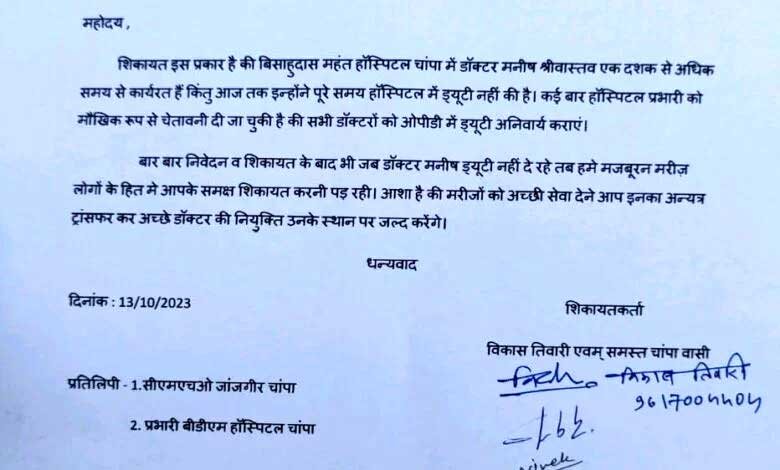 महोदय,
शिकायत इस प्रकार है की बिसाहुदास महंत हॉस्पिटल चांपा में डॉक्टर मनीष श्रीवास्तव एक दशक से अधिक
समय से कार्यरत हैं किंतु आज तक इन्होंने पूरे समय हॉस्पिटल में ड्यूटी नहीं की है। कई बार हॉस्पिटल प्रभारी को
मौखिक रूप से चेतावनी दी जा चुकी है की सभी डॉक्टरों को ओपीडी में ड्यूटी अनिवार्य कराएं।
बार बार निवेदन व शिकायत के बाद भी जब डॉक्टर मनीष ड्यूटी नहीं दे रहे तब हमे मजबूरन मरीज़
लोगों के हित मे आपके समक्ष शिकायत करनी पड़ रही। आशा है की मरीजों को अच्छी सेवा देने आप इनका अन्यत्र
ट्रांसफर कर अच्छे डॉक्टर की नियुक्ति उनके स्थान पर जल्द करेंगे।
धन्यवाद
दिनांक : 13/10/2023
शिकायतकर्ता
विकास तिवारी एवम् समस्त चांपा वासी
विकास तिवारी
प्रतिलिपि - 1.सीएमएचओ जांजगीर चांपा
2. प्रभारी बीडीएम हॉस्पिटल चांपा